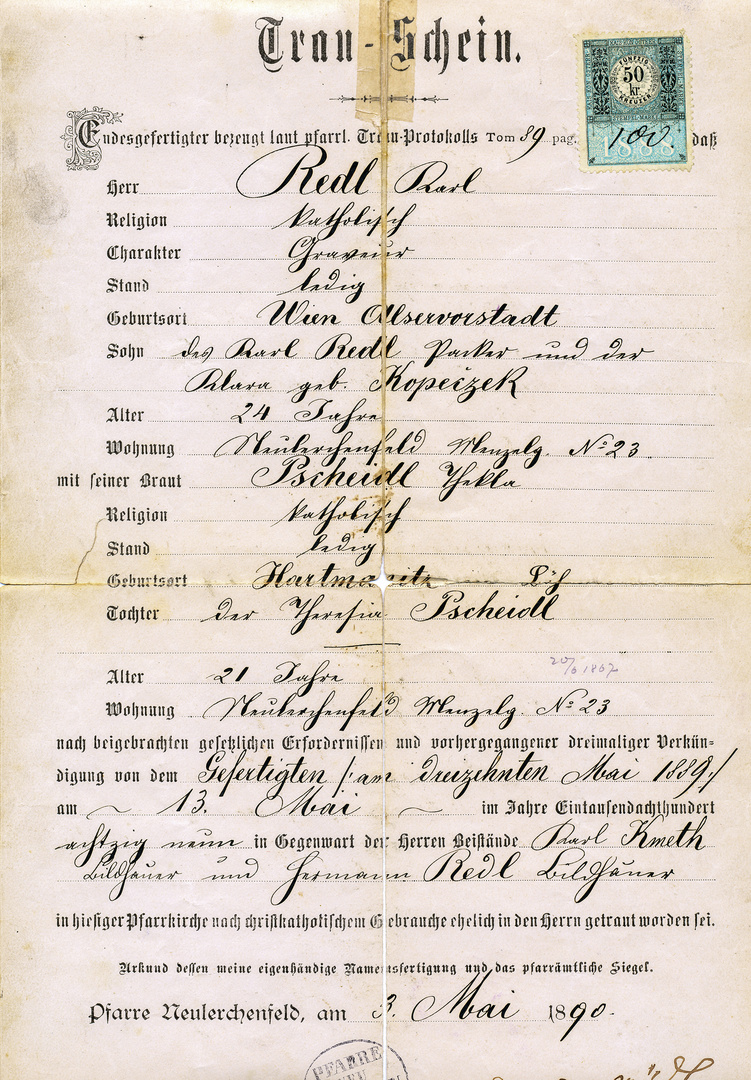 Trau-Schein.
KAIS. KÖN. ÖSTERR.
FÜNFZIG
50
kr.
KREUZER
STEMPEL-MARKE
1888
Endesgefertigter bezeugt laut pfarrl. Trau-Protokolls Tom 89 pag. 100 daß
Herr Redl Karl
Religion katholisch
Charakter Graveur
Stand ledig
Geburtsort Wien Alservorstadt
Sohn des Karl Redl Packer und der
Klara geb. Kopeczek
Alter 24 Jahre
Wohnung Neulerchenfeld Menzelg. No 23
mit seiner Braut Pscheidl Thekla
Religion katholisch
Stand ledig
Geburtsort Hartmanitz Böh
Tochter der Theresia Pscheidl
Alter 21 Jahre 20/6 1867
Wohnung Neulerchenfeld Menzelg. No 23
nach beigebrachten gesetzlichen Erfordernissen und vorhergegangener dreimaliger Verkün-
digung von dem Gefertigten /: am dreizehnten Mai 1889 :/
am 13. Mai im Jahre Eintausendachthundert
achtzig neun in Gegenwart der Herren Beistände Karl Kmeth
Bildhauer und Hermann Redl Bildhauer
in hiesiger Pfarrkirche nach christkatholischem Gebrauche ehelich in den Herrn getraut worden sei.
Urkund dessen meine eigenhändige Namensfertigung und das pfarrämtliche Siegel.
Pfarre Neulerchenfeld, am 3. Mai 1890.
PFARRE
NEU